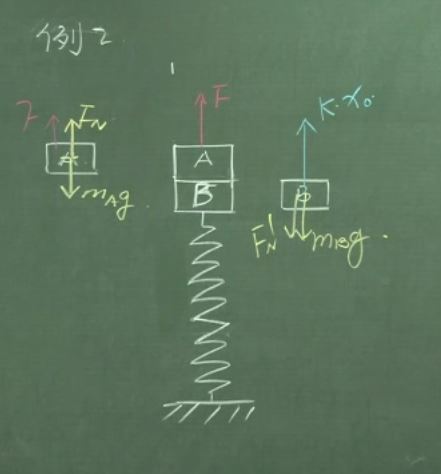 例2
F
F_N
A
m_Ag.
F
A
B
K·x₀
B
F_N'
m_Bg.